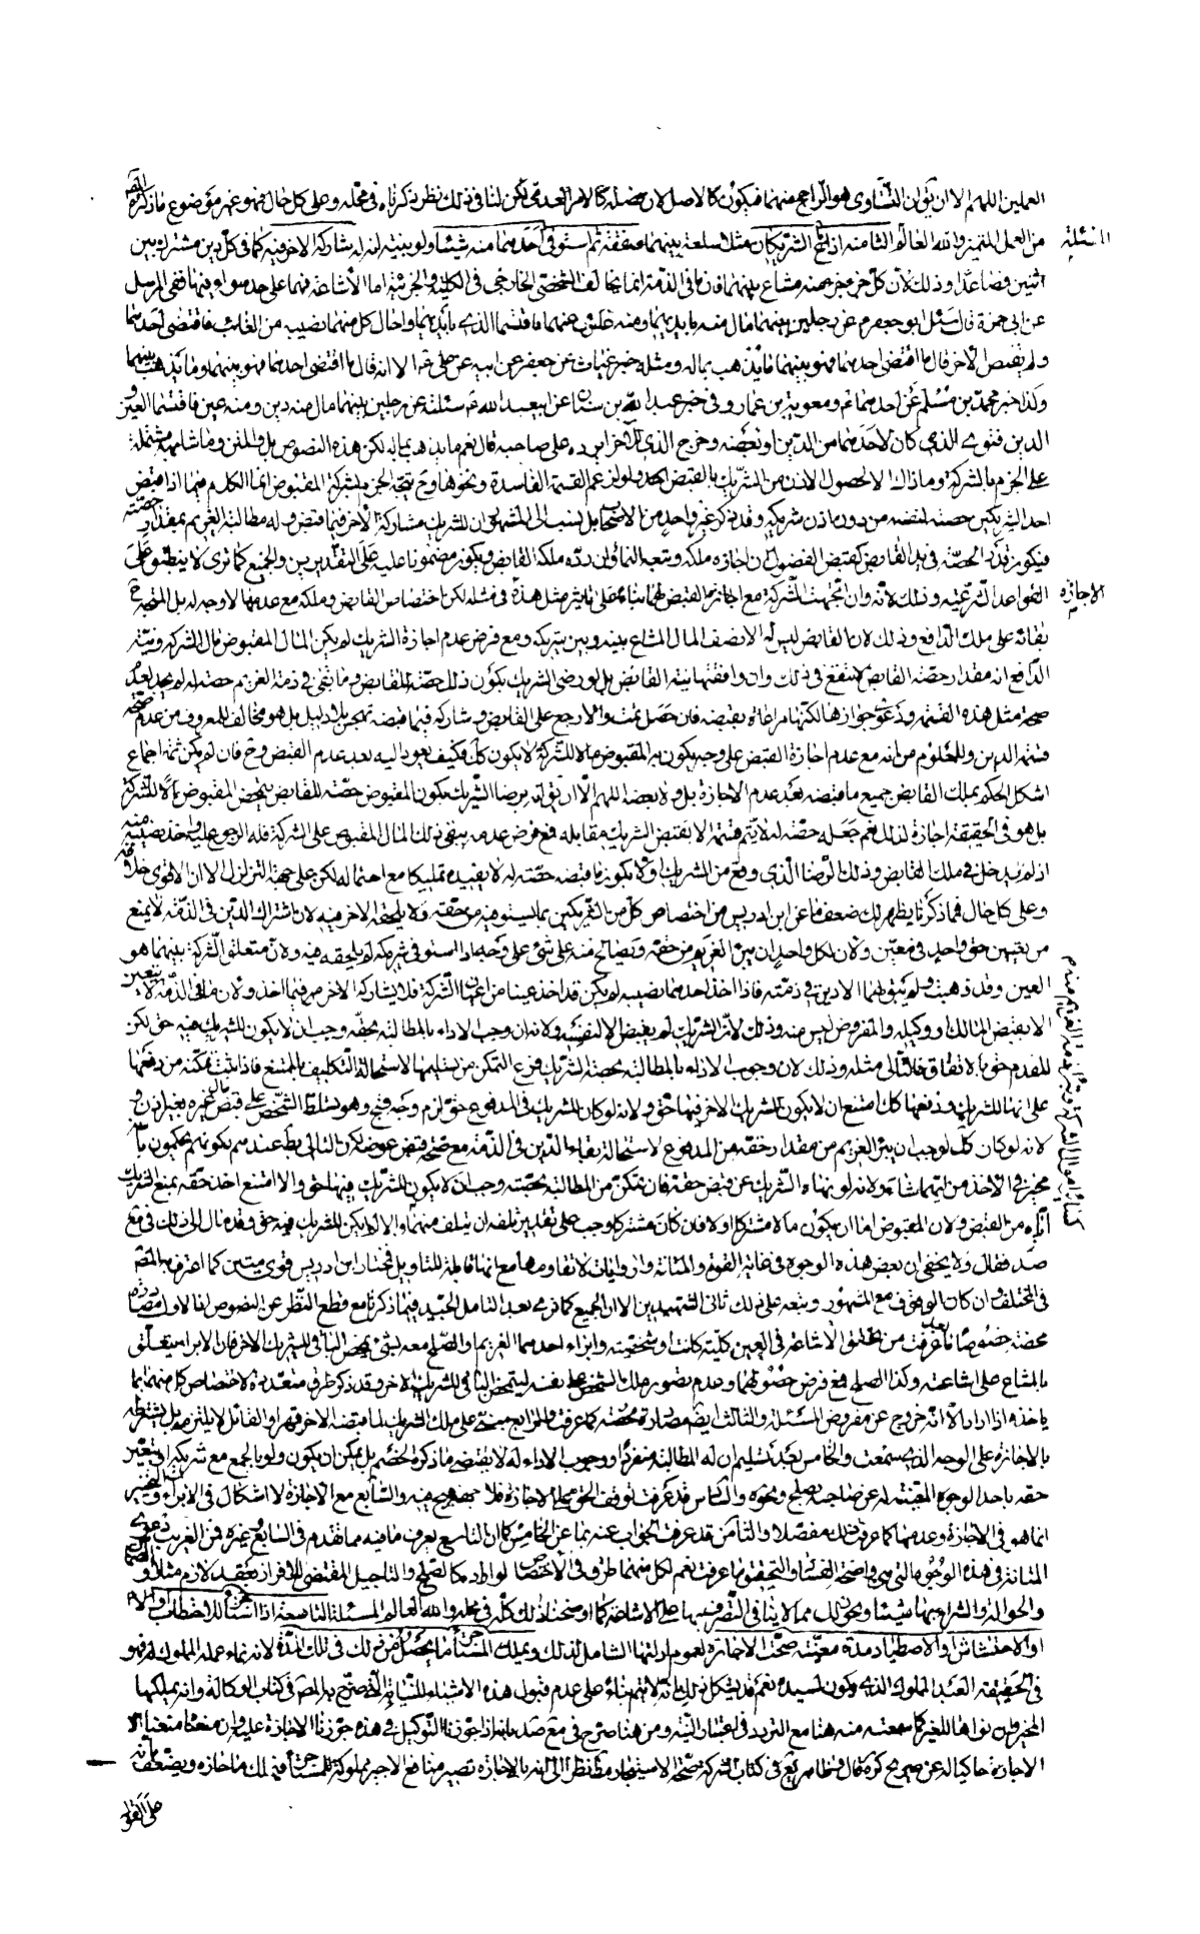 العملين اللهم الا ان يقال ان التساوى هو الراجح منهما فيكون كالاصل لان فضله كالامر العدمى لكن لنا فى ذلك نظر ذكرناه فى محله وعلى كل حال فهو غير موضوع ما ذكره المص
من العمل المتميز والله العالم الثامنة اذا باع الشريكان مثلا سلعة بينهما صفقة ثم استوفى احدهما منه شيئا ولو بنية انه له شاركه الاخر فيه كما فى كل دين مشترك بين
اثنين فصاعدا وذلك لان كل جزء جزء منه مشاع بينهما فان ما فى الذمة انما يخالف الشخصى الخارجى فى الكلية والجزئية اما الاشاعة فهما على حد سواء وفيهما ففى المرسل
عن ابى حمزة قال سئل ابو جعفر ع عن رجلين بينهما مال منه بايديهما ومنه غايب عنهما فاقتسما الذى بايديهما واحال كل منهما نصيبه من الغائب فاقتضى احدهما
ولم يقتض الاخر فقال ما اقتضى احدهما فهو بينهما وما يذهب بماله ومثله خبر غياث عن جعفر عن ابيه عن على ع الا انه قال ما اقتضى احدهما فهو بينهما وما يذهب بينهما
وكذا خبر محمد بن مسلم عن احدهما ع ومعوية بن عمار وفى خبر عبد الله بن سنان عن ابيعبد الله ع سئلته عن رجلين بينهما مال منه دين ومنه عين فاقتسما العين و
الدين فتوى الذى كان لاحدهما من الدين او بعضه وخرج الذى للاخر ايرده على صاحبه قال نعم ما يذهب بماله لكن هذه النصوص بل والمتن وما شابهه مشتملة
على الجزم بالشركة وما ذاك الا لحصول الاذن من الشريك بالقبض لهما ولو لزعم القسمة الفاسدة ونحوها وح يتجه الجزم بشركة المقبوض انما الكلام فيما اذا قبض
احد الشريكين حصته لنفسه من دون اذن شريكه وقد ذكر غير واحد من الاصحاب بل نسب الى المشهور ان للشريك مشاركة الاخر فيما قبض وله مطالبة الغريم بمقدار حصته
فيكون قدر الحصة فى يد القابض كقبض الفضولى ان اجازه ملكه وتبعه النماء وان رده ملكه القابض ويكون مضمونا عليه على التقديرين والجميع كما ترى لا ينطبق على
القواعد الشرعية وذلك لانه وان اتجهت الشركة مع اجازة القبض لهما بناء على تاثير مثل هذه فى مثله لكن اختصاص القابض وملكه مع عدمها لا وجه له بل المتجه ح
بقائه على ملك الدافع وذلك لان القابض ليس له الا نصف المال المشاع بينه وبين شريكه ومع فرض عدم اجازة الشريك لم يكن المال المقبوض مال الشركة ونية
الدافع انه مقدار حصة القابض لا ينفع فى ذلك وان وافقتها نية القابض بل لو رضى الشريك بكون ذلك حصة القابض وما بقى فى ذمة الغريم حصته له لم يجد لعدم
صحة مثل هذه القسمة ودعوى جوازها لكنها مراعاة بقبضه فان حصل تمت والا رجع على القابض وشاركه فيما قبضه تهجم بلا دليل بل هو مخالف للمعروف من عدم صحة
قسمة الدين وللمعلوم من انه مع عدم اجازة القبض على وجه يكون به المقبوض مالا للشركة لا يكون كك فكيف يعود اليه بعد عدم القبض وح فان لم يكن ثمة اجماع
اشكل الحكم بملك القابض جميع ما قبضه بعد عدم الاجازة بل ولا بعضه اللهم الا ان يقال انه برضا الشريك بكون المقبوض حصة للقابض يتمحض المقبوض مالا للشركة
بل هو فى الحقيقة اجازة لذلك نعم جعله حصة له لا يتم قسمة الا بقبض الشريك مقابله فمع فرض عدمه يبقى ذلك المال المقبوض على الشركة فله الرجوع عليه واخذ نصيبه منه
اذ لم يدخل فى ملك القابض وذلك الرضا الذى وقع من الشريك اولا بكون ما قبضه حصته له لا يفيده تمليكا مع احتماله لكن على جهة التزلزل الا ان الاقوى خلافه
وعلى كل حال فمما ذكرنا يظهر لك ضعف ما عن ابن ادريس من اختصاص كل من الشريكين بما يستوفيه من حقه ولا يلحقه الاخر فيه لان اشتراك الدين فى الذمة لا يمنع
من تعيين حق واحد فى معين ولان لكل واحد ان يبرء الغريم من حقه ويصالح منه على شئ على وجه اذا استوفى شريكه لم يلحقه فيه ولان متعلق الشركة بينهما هو
العين وقد ذهبت ولم يبق لهما الا دين فى ذمته فاذا اخذ احدهما نصيبه لم يكن قد اخذ عينا من اعيان الشركة فلا يشاركه الاخر فيما اخذ ولان ما فى الذمة لا يتعين
الا بقبض المالك او وكيله والمفروض ليس منه وذلك لان الشريك لم يقبض الا لنفسه ولانه ان وجب الاداء بالمطالبة بحقه وجب ان لا يكون للشريك فيه حق لكن
المقدم حق بالاتفاق فالتالى مثله وذلك لان وجوب الاداء بالمطالبة بحصة الشريك فرع التمكن من تسليمها لاستحالة التكليف بالممتنع فاذا ثبت تمكنه من دفعها
على انها للشريك ودفعها كك امتنع ان لا يكون للشريك الاخر فيها حق ولانه لو كان للشريك فى المدفوع حق لزم وجه قبح وهو تسلط الشخص على قبض مال غيره بغير اذن و
لانه لو كان كك لوجب ان يبرء الغريم من مقدار حقه من المدفوع لاستحالة بقاء الدين فى الذمة مع صحة قبض عوضه لكن التالى بط عندهم بكونهم يحكمون بانه
مخير فى الاخذ من ايهما شاء ولانه لو نهاه الشريك عن قبض حقه فان تمكن من المطالبة بحصته وجب ان لا يكون للشريك فيها حق والا امتنع اخذ حقه بمنع الشريك
اياه من القبض ولان المقبوض اما ان يكون مالا مشتركا او لا فان كان مشتركا وجب على تقدير تلفه ان يتلف منهما والا لم يكن للشريك فيه حق وقد مال الى ذلك فى مع
صد فقال ولا يخفى ان بعض هذه الوجوه فى غاية القوة والمتانة والروايات لا تقاومها مع انها قابلة للتاويل فمختار ابن ادريس قوى متين كما اعترف به المص
فى المختلف وان كان الوقوف مع المشهور وتبعه على ذلك ثانى الشهيدين الا ان الجميع كما ترى بعد التامل الجيد فيما ذكرنا مع قطع النظر عن النصوص اما الاول فمصادرة
محضة خصوصا بعد ما عرفت من تحقق الاشاعة فى العين كلية كانت او شخصية وابراء احدهما الغريم او الصلح معه بشئ يمحض الباقى للشريك الاخر فان الابراء يتعلق
بالمشاع على اشاعته وكذا الصلح مع فرض حصولهما وعدم تصور ملك الشخص على نفسه ليتمحض الباقى للشريك الاخر وقد ذكر طرق متعددة لاختصاص كل منهما بما
ياخذه اذا ارادا الا انه خروج عن مفروض المسئلة والثالث ايضا مصادرة محضة كما عرفت والرابع مبنى على ملك الشريك لما قبضه الاخر قهرا والقائل لا يلتزمه بل يشترطه
بالاجازة على الوجه الذى سمعت والخامس بعد تسليم ان له المطالبة منفردا ووجوب الاداء له لا يقتضى ما ذكره الخصم بل يمكن ان يكون ولو بالجمع مع شريكه او بتعيين
حقه باحد الوجوه المعينة له عن صاحبه بصلح ونحوه والسادس قد عرفت توقف الحق على الاجازة فلا قبح فيه والسابع مع الاجازة لا اشكال فى الابراء والتخيير
انما هو فى الاجازة وعدمها كما عرفت ذلك مفصلا والثامن قد عرفت الجواب عنه بما عن الخامس كما ان التاسع يعرف ما فيه مما تقدم فى السابع وغيره فمن الغريب دعوى
المتانة فى هذه الوجوه التى هى واضحة الفساد والتحقيق ما عرفت نعم لكل منهما طرق فى الاختصاص لو اراده كالصلح والتاجيل المقتضى للافراز بعقد لازم مثلا و
والحوالة والشراء بها شيئا ونحو ذلك مما لا ينافى التصرف بها على الاشاعة كما اوضحنا ذلك كله فى محله والله العالم المسئلة التاسعة اذا استاجر للاحتطاب
او الاحتشاش او الاصطياد مدة معينة صحت الاجازة لعموم ادلتها الشامل لذلك ويملك المستاجر ما يحصل من ذلك فى تلك المدة لانه نماء عمله المملوك له فهو
فى الحقيقة العبد المملوك الذى يكون لسيده نعم قد يشكل ذلك بانه لا يتم بناء على عدم قبول هذه الاشياء للنيابة التى صرح به المص فى كتاب الوكالة وانه يملكها
المحيز وان نواها للغير كما سمعته منه هنا مع التردد فى اعتبار النية ومن هنا صرح فى مع صد بانه اذا جوزنا التوكيل فى هذه جوزنا الاجارة عليه وان منعنا منعنا
الاجارة حاكيا له عن صريح كرة قال وظاهر يع فى كتاب الشركة صحة الاستيجار نظرا الى انه بالاجارة تصير منافع الاجير مملوكة للمستاجر فيملك ما حازه ويضعف بانه
على القول
المسئلة
الاجازة